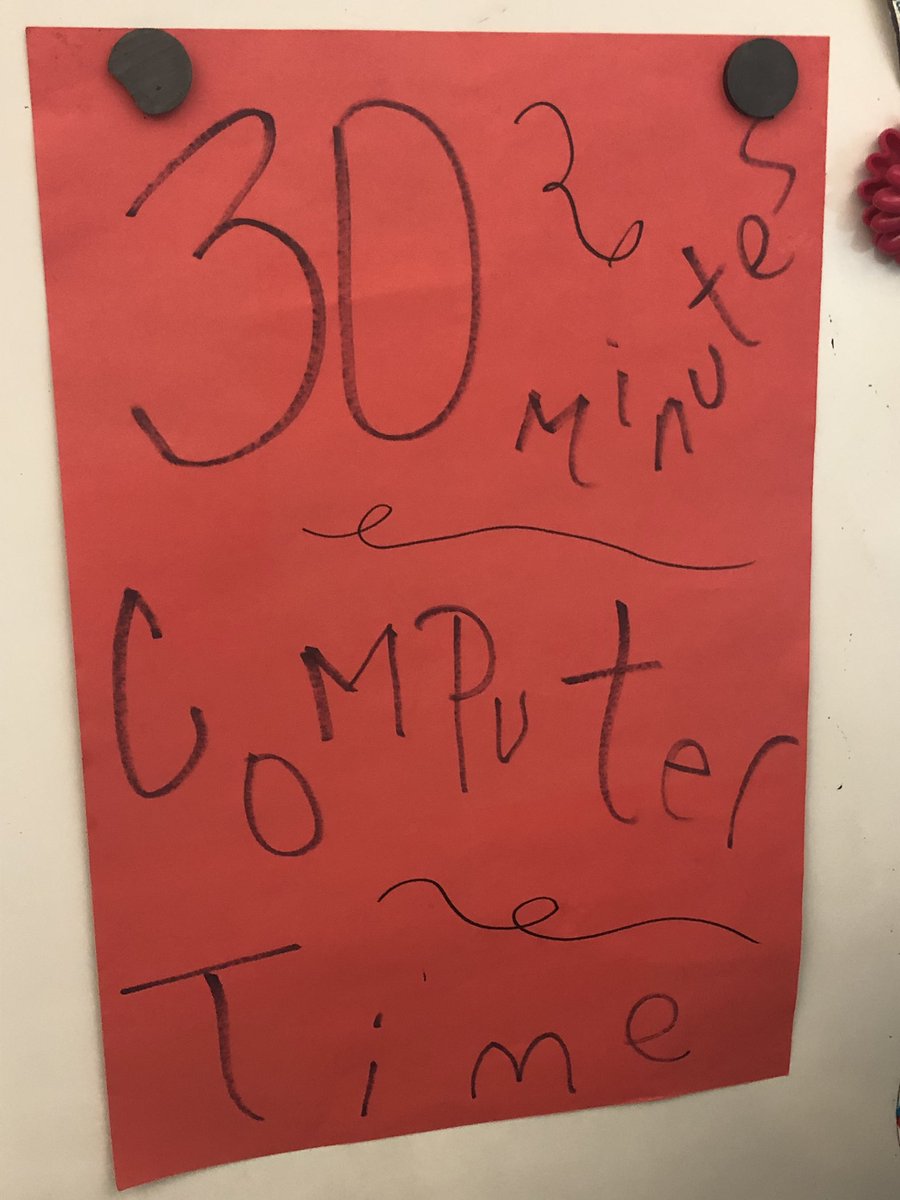 30 Minutes
Computer
Time